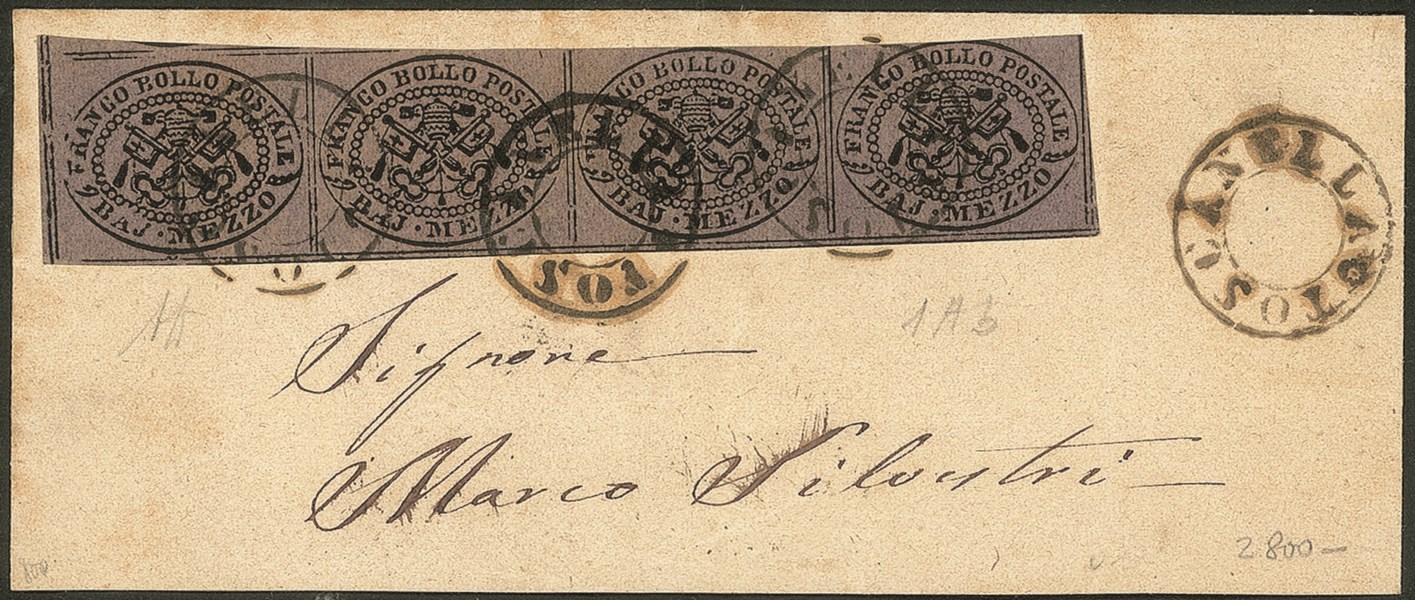 FRANCO BOLLO POSTALE
BAJ·MEZZO
FRANCO BOLLO POSTALE
BAJ·MEZZO
FRANCO BOLLO POSTALE
BAJ·MEZZO
FRANCO BOLLO POSTALE
BAJ·MEZZO
TOSCANELLA
Signore
Marco Silvestri
1Ab
2800—